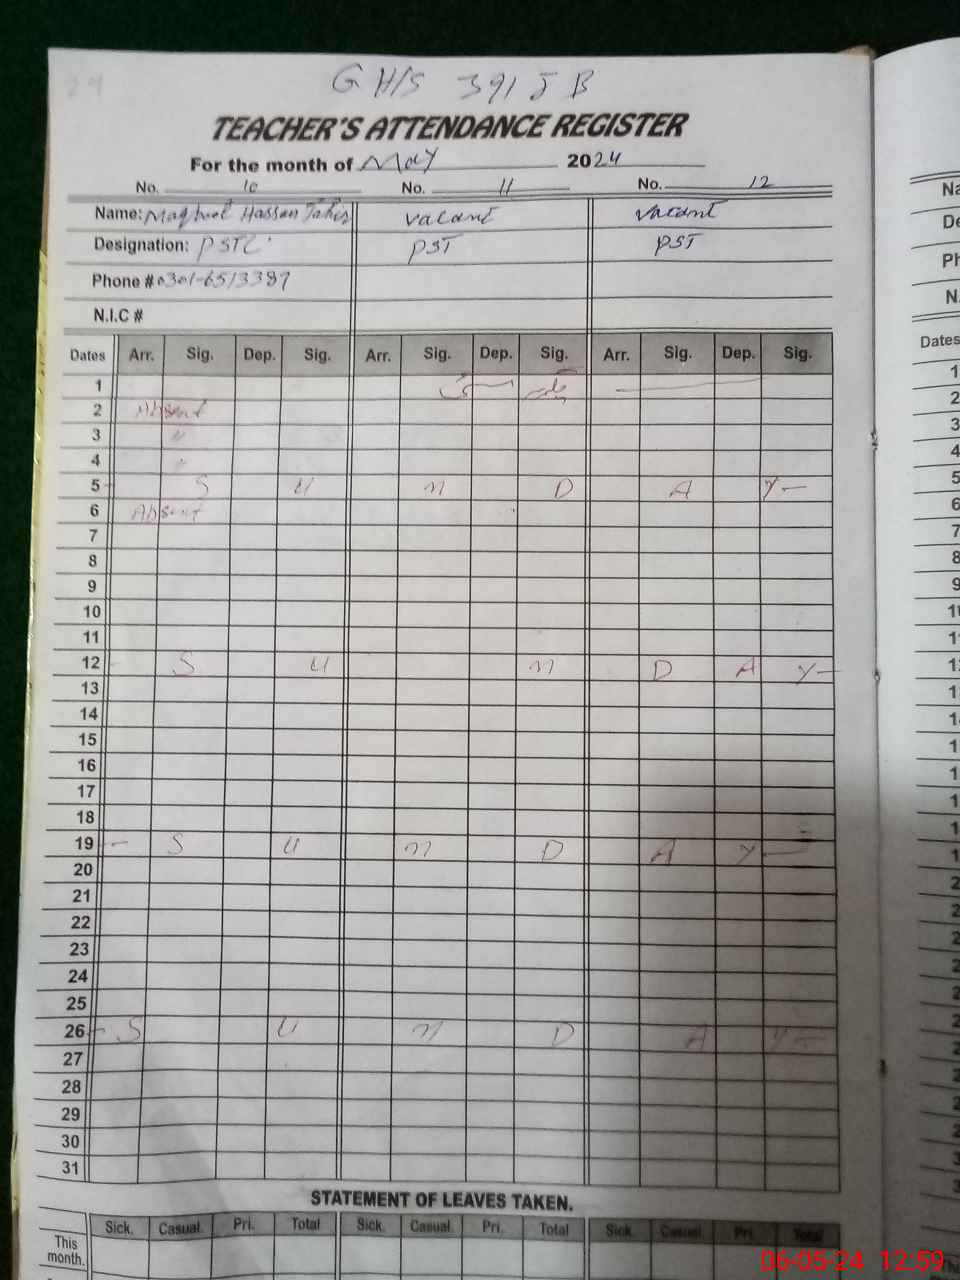 GH/S 391 JB
TEACHER'S ATTENDANCE REGISTER
For the month of May 2024
No. 10 No. 11 No. 12
Name: Hassan Tahir vacant vacant
Designation: PSTC PST PST
Phone # 0301-6513387
N.I.C #
Dates Arr. Sig. Dep. Sig. Arr. Sig. Dep. Sig. Arr. Sig. Dep. Sig.
1
2 Absent
3 "
4 "
5 S U N D A Y
6 Absent
7
8
9
10
11
12 S U N D A Y
13
14
15
16
17
18
19 S U N D A Y
20
21
22
23
24
25
26 S U N D A Y
27
28
29
30
31
STATEMENT OF LEAVES TAKEN.
Sick. Casual. Pri. Total Sick. Casual. Pri. Total Sick. Casual. Pri. Total
This
month.
06-05-24 12:59